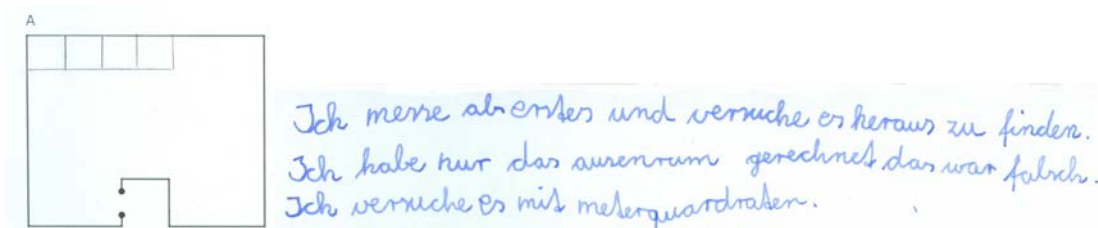 A
Ich messe als erstes und versuche es heraus zu finden.
Ich habe nur das ausenrum gerechnet das war falsch.
Ich versuche es mit meterquardraten.